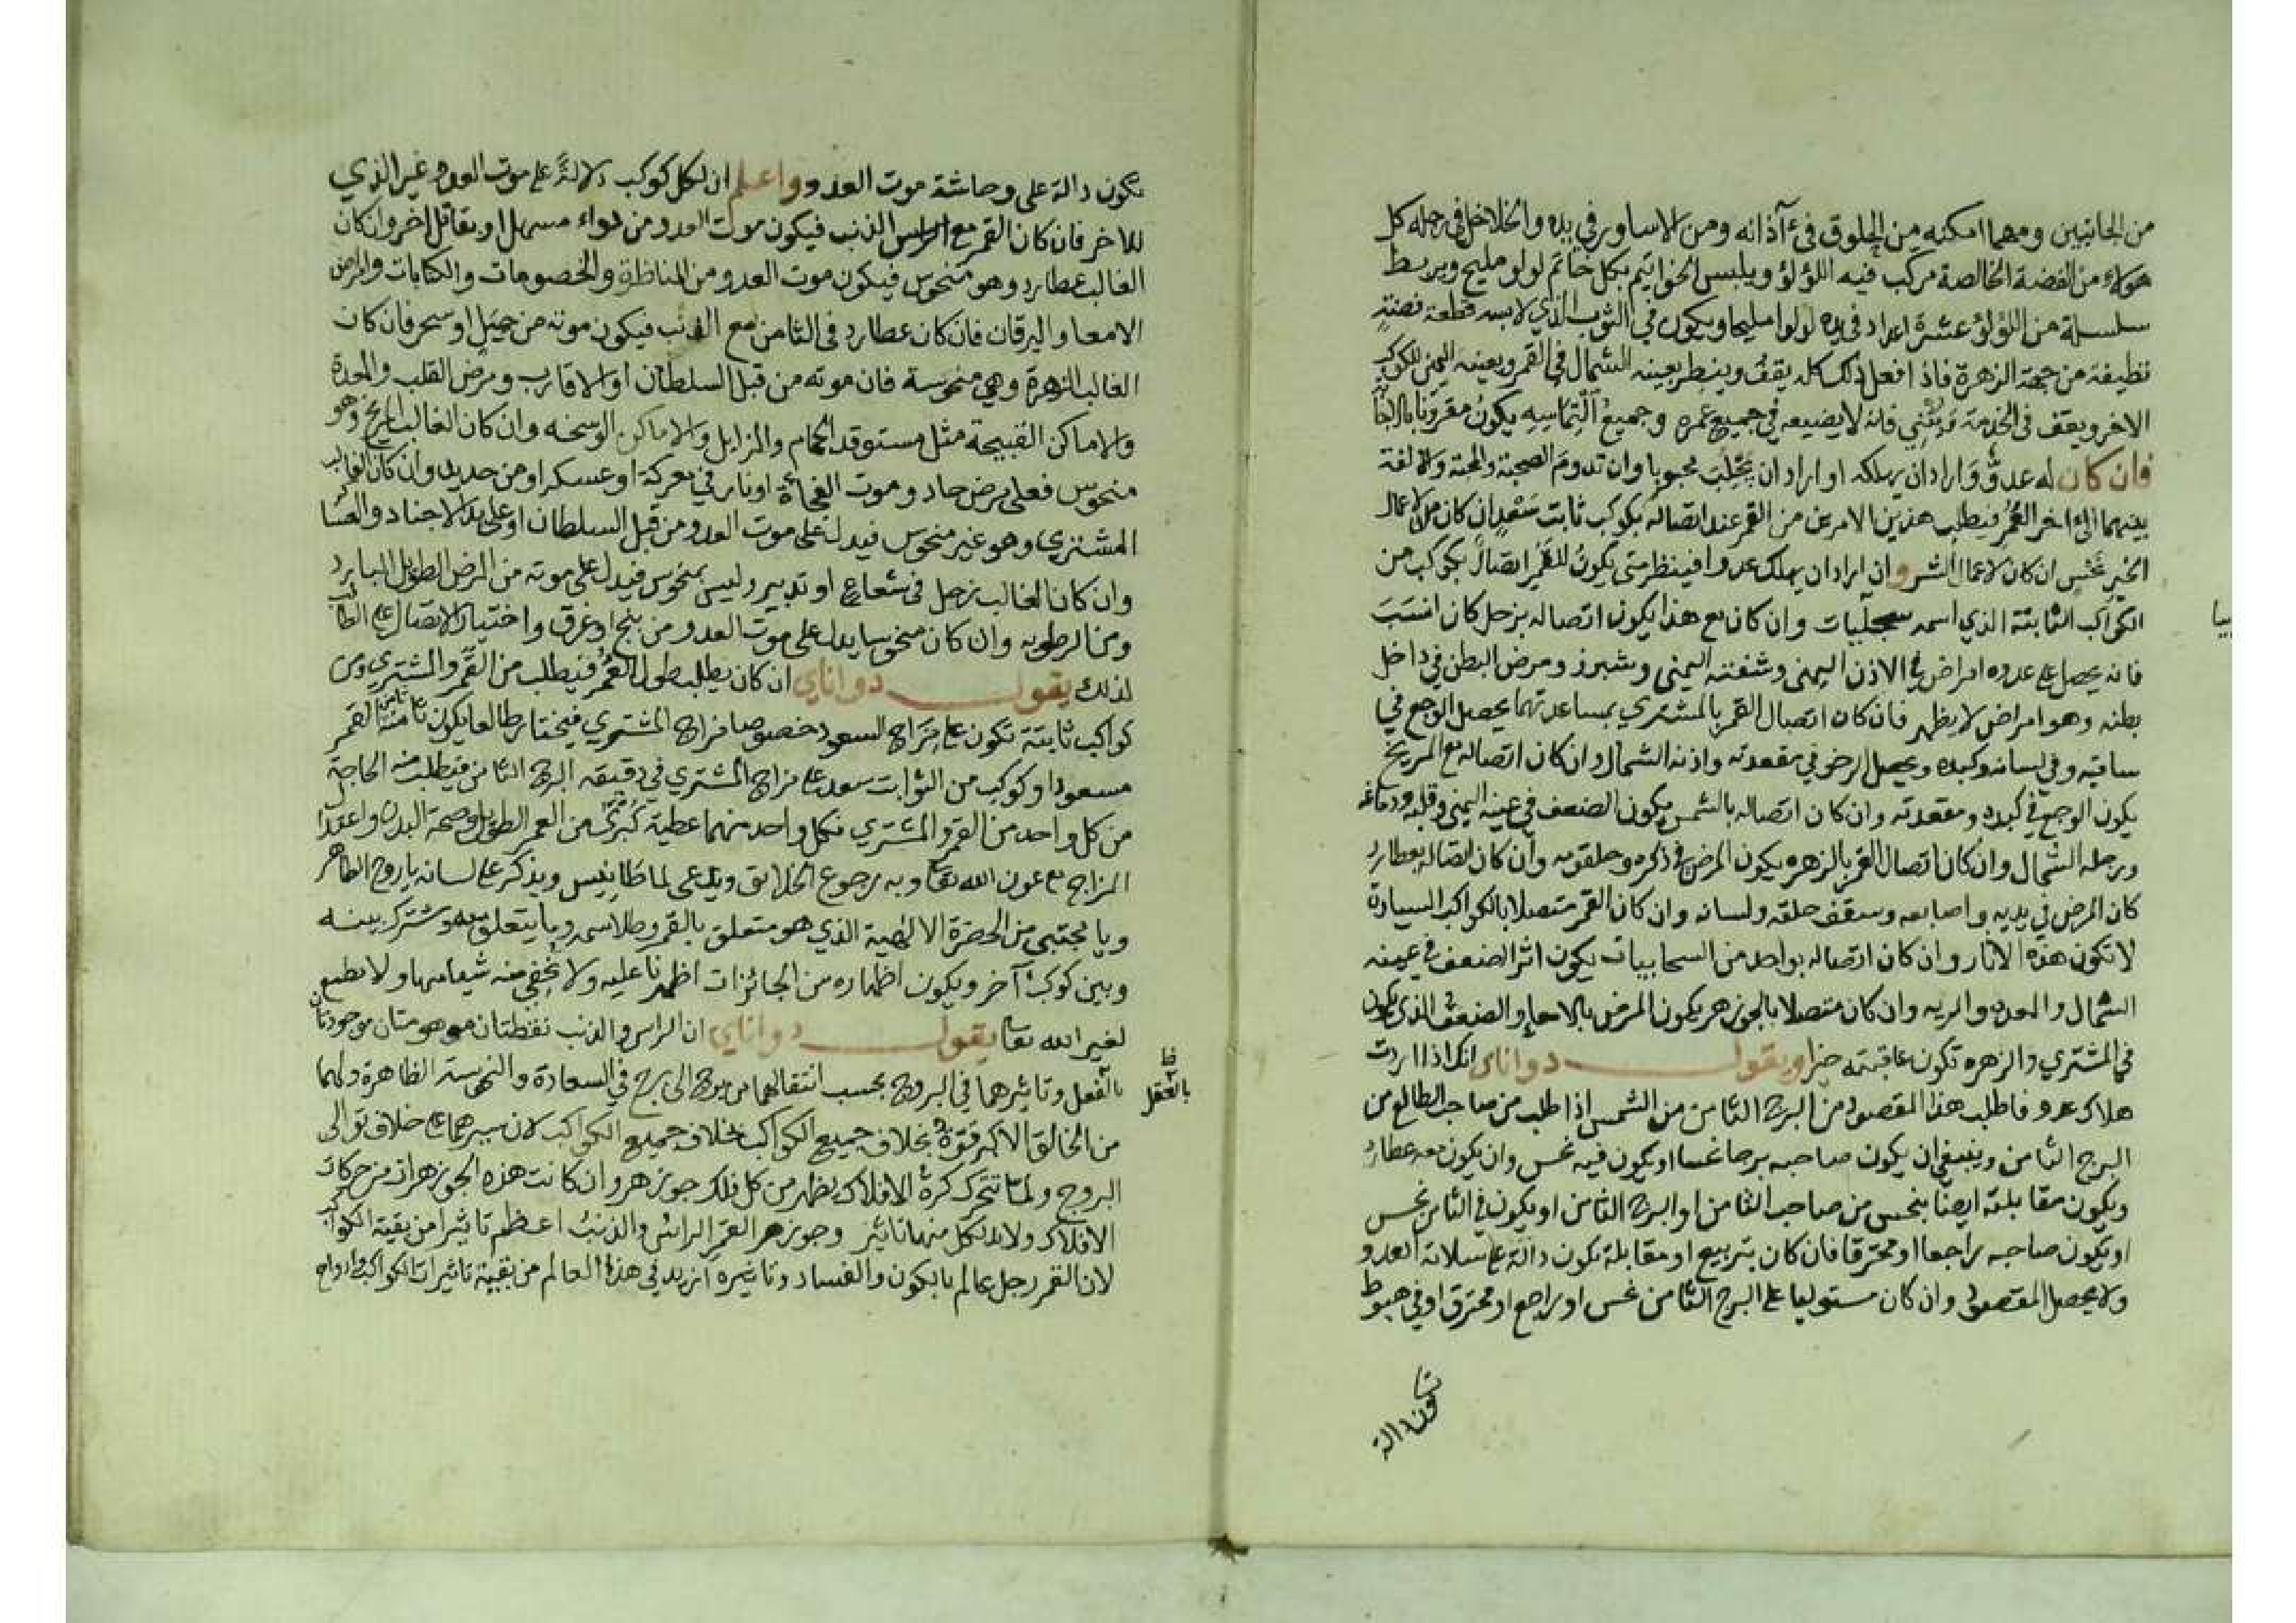 من الجانبين ومهما امكنه من الحلوق في آذانه ومن الاساور في يده والخلاخل في رجله كل
هؤلاء من الفضة الخالصة مركب فيه اللؤلؤ ويلبس الخواتيم بكل خاتم لولو مليح ويربط
سلسلة من اللؤلؤ عشرة اعداد في يده لولوا مليحا ويكون في الثوب الذي لابسه قطعة فضة
نظيفة من جهة الزهرة فاذا فعل ذلك كله يقف وينظر بعينه الشمال في القمر وبعينه اليمنى للكوكب
الاخر ويقف في الخدمة فانه لا يضيعه في جميع عمره وجميع التماسه يكون مقرونا بالاجابة
فان كان له عدوٌّ واراد ان يهلكه او اراد ان يجلب محبوبا وان تدوم الصحبة والمحبة والالفة
بينهما الى اخر العمر فيطلب هذين الامرين من القمر عند اتصاله بكوكب ثابت سعد ان كان من الاعمال
الخير نحس ان كان لاعمال الشر وان اراد ان يهلك عدوا فينظر متى يكون للقمر اتصال بكوكب من
الكواكب الثابتة الذي اسمه سحابيات وان كان مع هذا يكون اتصاله بزحل كان انسب
بيا
فانه يحصل على عدوه امراض في الاذن اليمنى وشفته اليمنى ومرض البطن في داخل
بطنه وهو امراض لا يظهر فان كان اتصال القمر بالمشتري بمساعدتهما يحصل الوجع في
ساقيه وفي لسانه وكبده ويحصل المرض في مقعدته واذنه الشمال وان كان اتصاله مع المريخ
يكون الوجع في كبده ومقعدته وان كان اتصاله بالشمس يكون الضعف في عينه اليمنى وقلبه ودماغه
ورجله الشمال وان كان اتصال القمر بالزهره يكون المرض في ذكره وحلقومه وان كان اتصاله بعطارد
كان المرض في يديه واصابعه وسقف حلقه ولسانه وان كان القمر متصلا بالكواكب السيارة
لا تكون هذه الاثار وان كان اتصاله بواحد من السحابيات يكون اثر الضعف في عينه
الشمال والمعده والريه وان كان متصلا بالجوزهر يكون المرض بالامعاء والضعف الذي يكون
في المشتري والزهره تكون عاقبته خيرا ويقول دواناى انك اذا اردت
هلاك عدو فاطلب هذا المقصود من البرج الثامن من الشمس اذا طلب من صاحب الطالع من
البرج الثامن وينبغي ان يكون صاحبه برجا نحسا او يكون فيه نحس وان يكون معه عطارد
ويكون مقابلته ايضا بنحس من صاحب الثامن او البرج الثامن او يكون في الثامن نحس
او يكون صاحبه راجعا او محترقا فان كان بتربيع او مقابلة يكون دالة على سلامة العدو
ولا يحصل المقصود وان كان مستوليا على البرج الثامن نحس او راجع او محترق او في هبوط
تكون دالة
تكون دالة على وحاشة موت العدو واعلم ان لكل كوكب دلالةً على موت العدو غير الذي
للاخر فان كان القمر مع الراس الذنب فيكون موت العدو من دواء مسهل او بقاتل اخر وان كان
الغالب عطارد وهو منحوس فيكون موت العدو من المناظرة والخصومات والكتابات والمرض
الامعا واليرقان فان كان عطارد في الثامن مع الذنب فيكون موته من حيل او سحر فان كان
الغالب الزهرة وهي منحوسة فان موته من قبل السلطان او الاقارب ومرض القلب والمعدة
والاماكن القبيحة مثل مستوقد الحمام والمزابل والاماكن الوسخه وان كان الغالب المريخ وهو
منحوس فعلى مرض حاد وموت الفجاة او نار في معركة او عسكر او من حديد وان كان الغالب
المشتري وهو غير منحوس فيدل على موت العدو من قبل السلطان او على يد الاجناد والغسا
وان كان الغالب زحل في شعاع او تدبير وليس بمنحوس فيدل على موته من المرض الطويل البارد
ومن الرطوبه وان كان منحوسا يدل على موت العدو من بنج او غرق واختيار الاتصال على الطالب
لذلك يقول دواناي ان كان يطلب طول العمر فيطلب من القمر والمشتري ومن
كواكب ثابتة تكون على مزاج السعود خصوصا مزاج المشتري فيختار طالعا يكون ثامنه القمر
مسعودا او كوكب من الثوابت سعد على مزاج المشتري في دقيقه البرج الثامن فيطلب منه الحاجة
من كل واحد من القمر والمشتري فكل واحد منهما عطية كبرى من العمر الطويل وصحة البدن واعتدال
المزاج مع عون الله تعا وبه رجوع الخلائق ويدعى لماطانيس ويذكر على لسانه ياروح الطاهر
ويا مجتبى من الحضرة الالهية الذي هو متعلق بالقمر وطلاسمه وبا يتعلق به ومشترك بينه
وبين كوكب آخر ويكون اظهاره من الجائزات اظهرنا عليه ولا تخفي منه شيا منها ولا نطيع
لغير الله تعا يقول دواناي ان الراس والذنب نقطتان موهومتان موجودتان
بالفعل وتاثيرهما في البروج بحسب انتقالهما من برج الى برج في السعادة والنحوسة الظاهرة ولهما
بالعقل
من الخالق الاكبر قوة بخلاف جميع الكواكب بخلاف جميع الكواكب لان سيرهما على خلاف توالى
البروج ولما تتحرك كرة الافلاك يظهر من كل فلك جوزهر وان كانت هذه الجوزهرات من حركات
الافلاك ولا بد لكل منها تاثير وجوزهر القمر الراس والذنب اعظم تاثيرا من بقية الكواكب
لان القمر رجل عالم بالكون والفساد وتاثيره ازيد في هذا العالم من بقية تاثيرات الكواكب وادواح